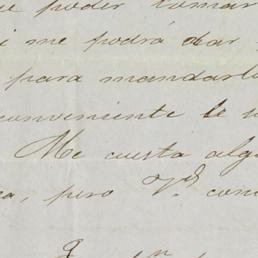 poder tomar
me podrá dar
para mandarl
conveniente le
Me cuesta alg
a, pero Vd. com